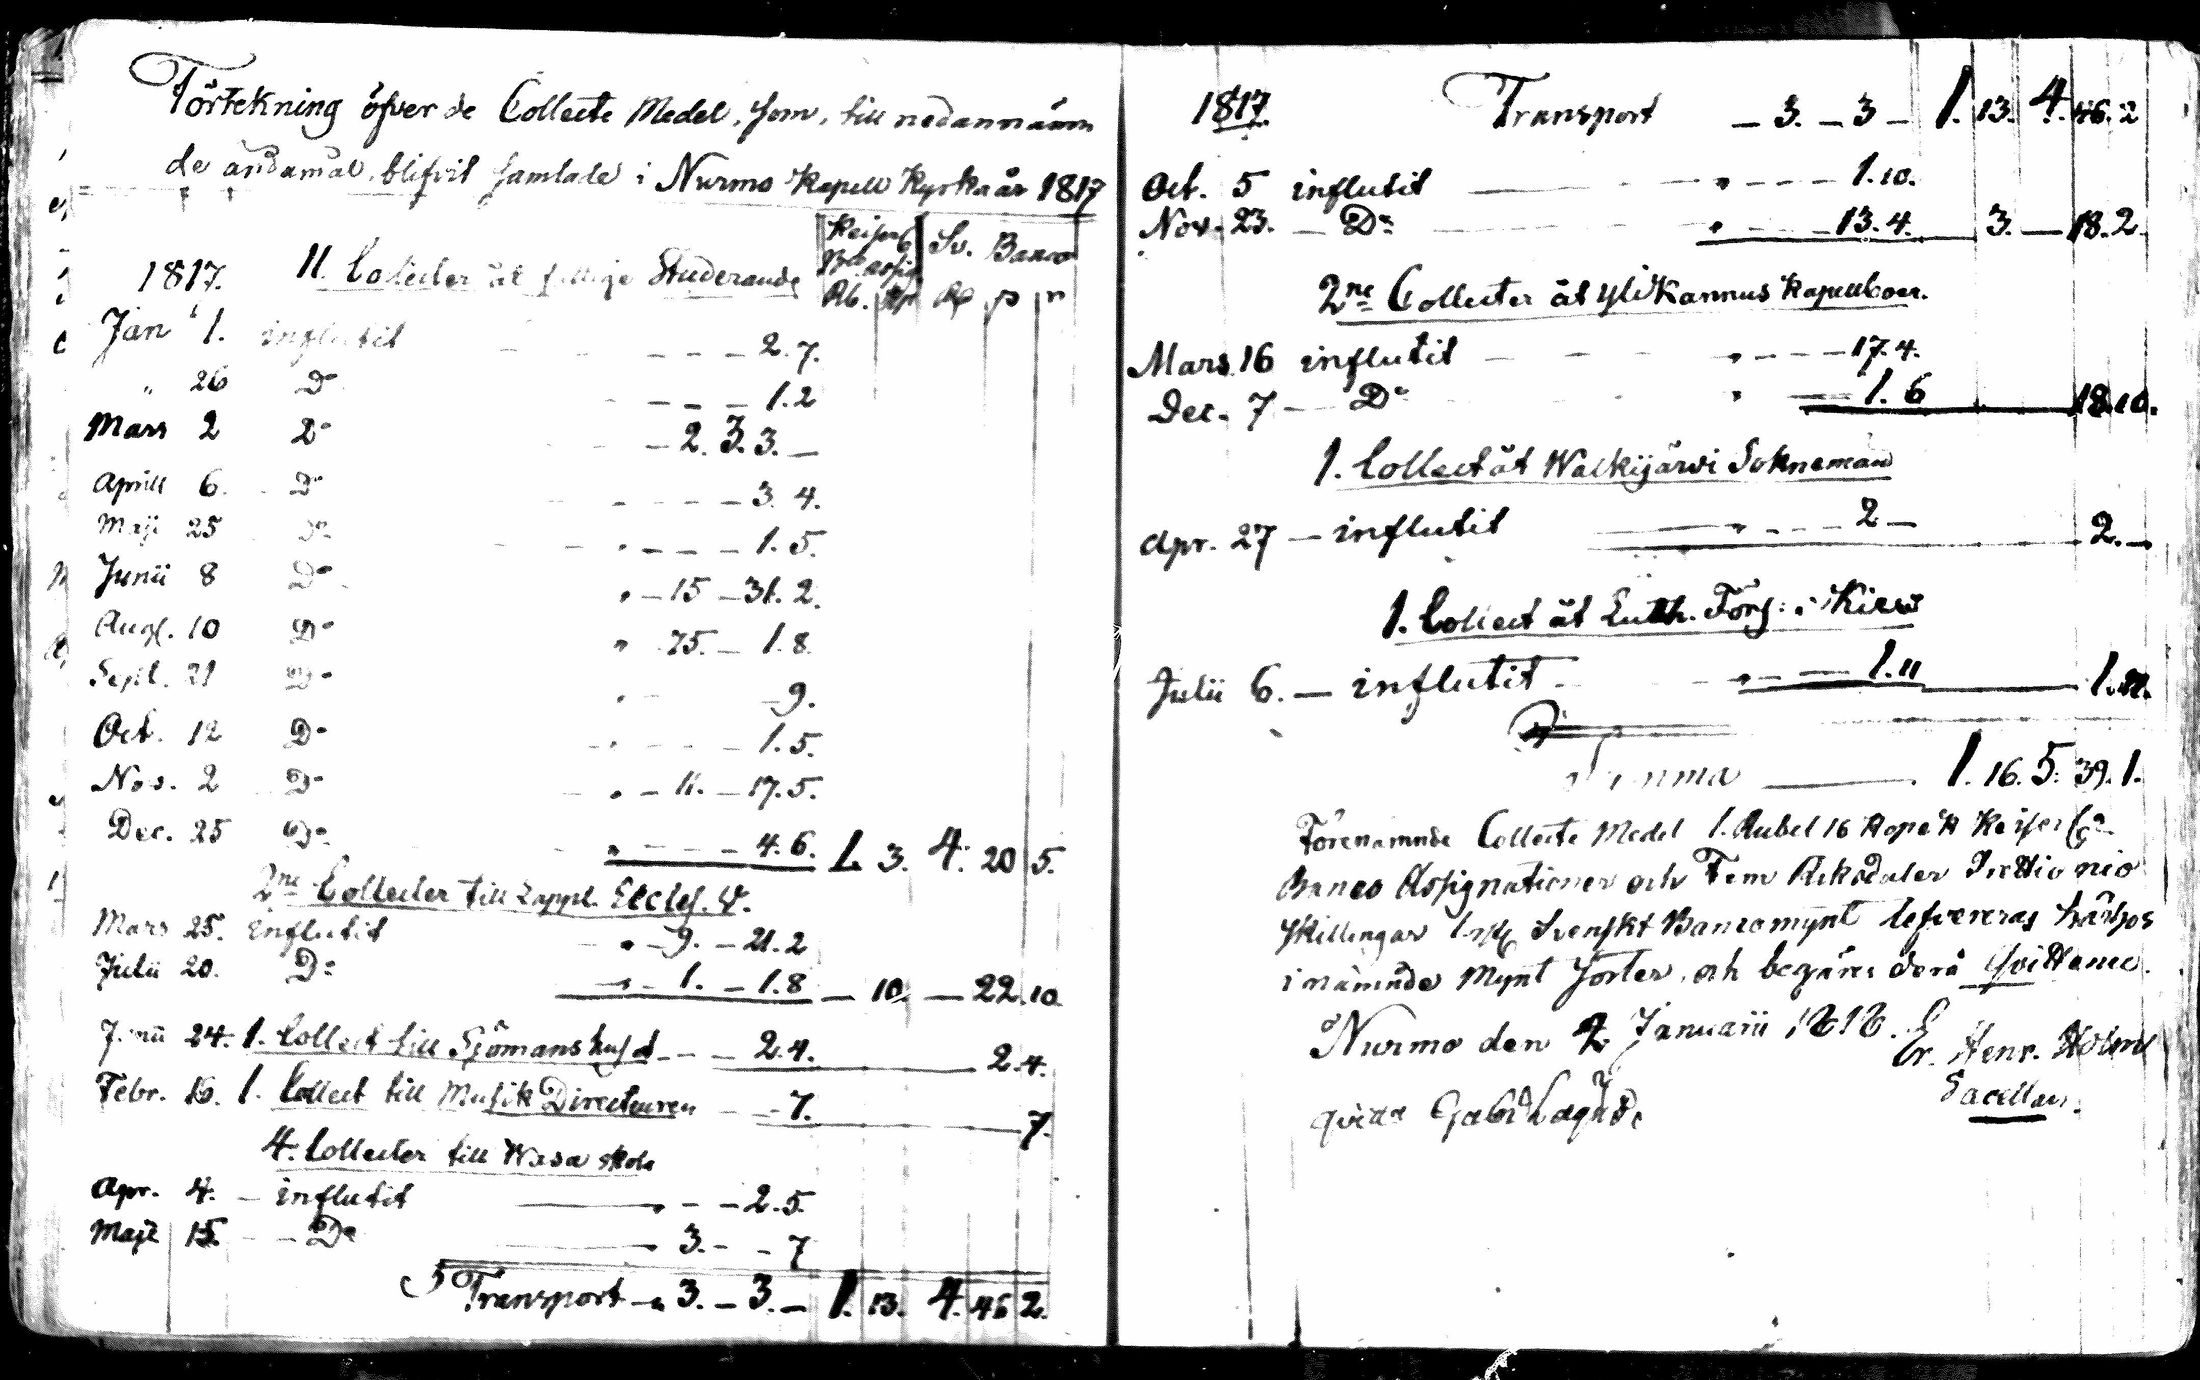 Förtekning öfver de Collecte Medel, som, till nedannämn
de ändamål, blifvit samlade i Nurmo Kapell Kyrka år 1817
Keiserl. Sv. Banco
Bco assig.
1817. 11. Collecter åt fattige Studerande Rb. Kp. Rd β r
Jan 1. influtit - - - - 2.7.
" 26 Do - - - 1.2
Mars 2 Do - 2. 3. 3. -
Aprill 6. Do - - - - 3. 4.
Maji 25 Do " - - - 1. 5.
Junii 8 Do " - 15 - 31. 2.
Aug. 10 Do " 75. - 1. 8.
Sept. 21 Do " - 9.
Oct. 12 Do - - - 1. 5.
Nov. 2 Do " - 11. - 17. 5.
Dec. 25 Do " - - - 4. 6. 1. 3. 4. 20 5.
2ne Collecter till Lappl. Eccles. V.
Mars 25. influtit " - 9. - 21. 2
Julii 20. Do " - 1. - 1. 8 - 10. - 22. 10
Junii 24. 1. Collect till Sjömanshuset - - - 2.4. 2.4.
Febr. 16. 1. Collect till Musik Directeuren - - 7. 7.
4. Collecter till Wasa skola
Apr. 4. - influtit - - - 2. 5.
Maji 15. - Do 3. - - 7
Transport - " 3. - 3. - 1. 13. 4. 46 2.
1817. Transport - 3. - 3 - 1. 13. 4. 46. 2
Oct. 5 influtit " - - - - 1. 10.
Nov. 23. - Do " - - - 13. 4. 3. - 18. 2.
2ne Collecter åt Ylikannus Kapellboer.
Mars 16 influtit - - - " - - - 17. 4.
Dec. 7 - Do " 1. 6 18. 10.
1. Collect åt Walkijärvi Sokneman
Apr. 27 - influtit " - - - 2 - 2. -
1. Collect åt Luth. Förs: i Kiew
Julii 6. - influtit - " - - 1. 11 1. 11.
Summa 1. 16. 5. 39. 1.
Förenämnde Collecte Medel 1. Rubel 16 Kopek Keiserl.
Banco Assignationer och Fem Riksdaler Trettio nio
skillingar 1 rst. Svenskt Bancomynt lefvereras härhos
i nämnde Mynt sorter, och begäres derå Qvittance.
Nurmo den 2 Januarii 1818. Er. Henr. Holm
Sacellan.